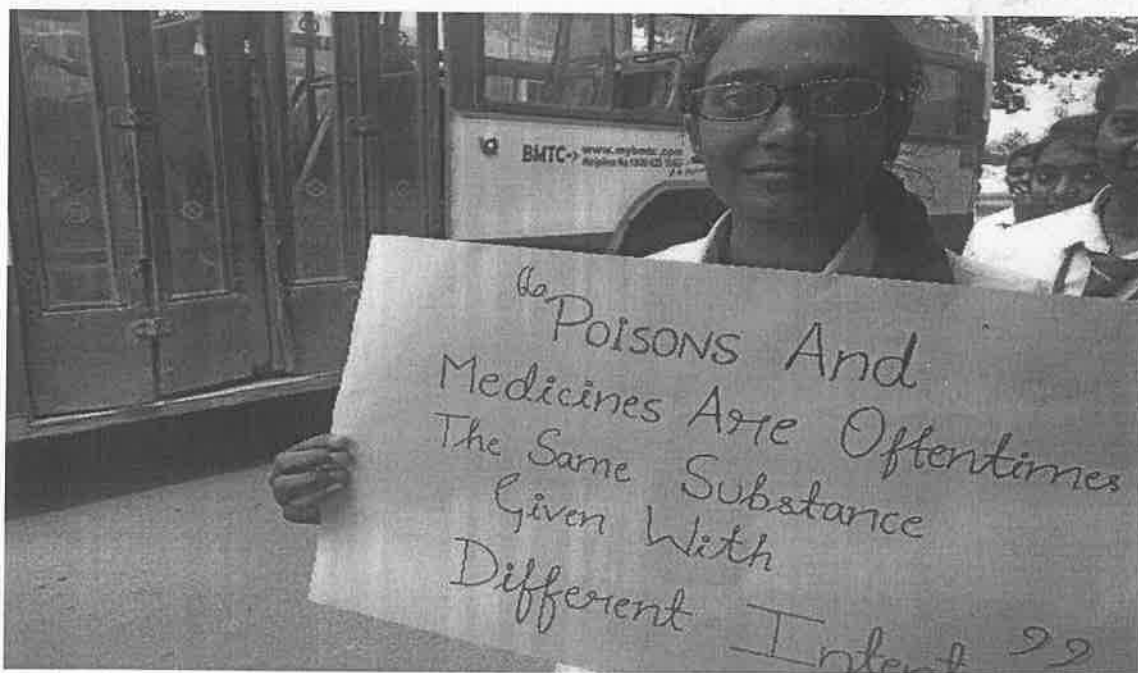 BMTC-> www.mybmtc.com
Helpline No
"Poisons And
Medicines Are Oftentimes
The Same Substance
Given With
Different Intent"